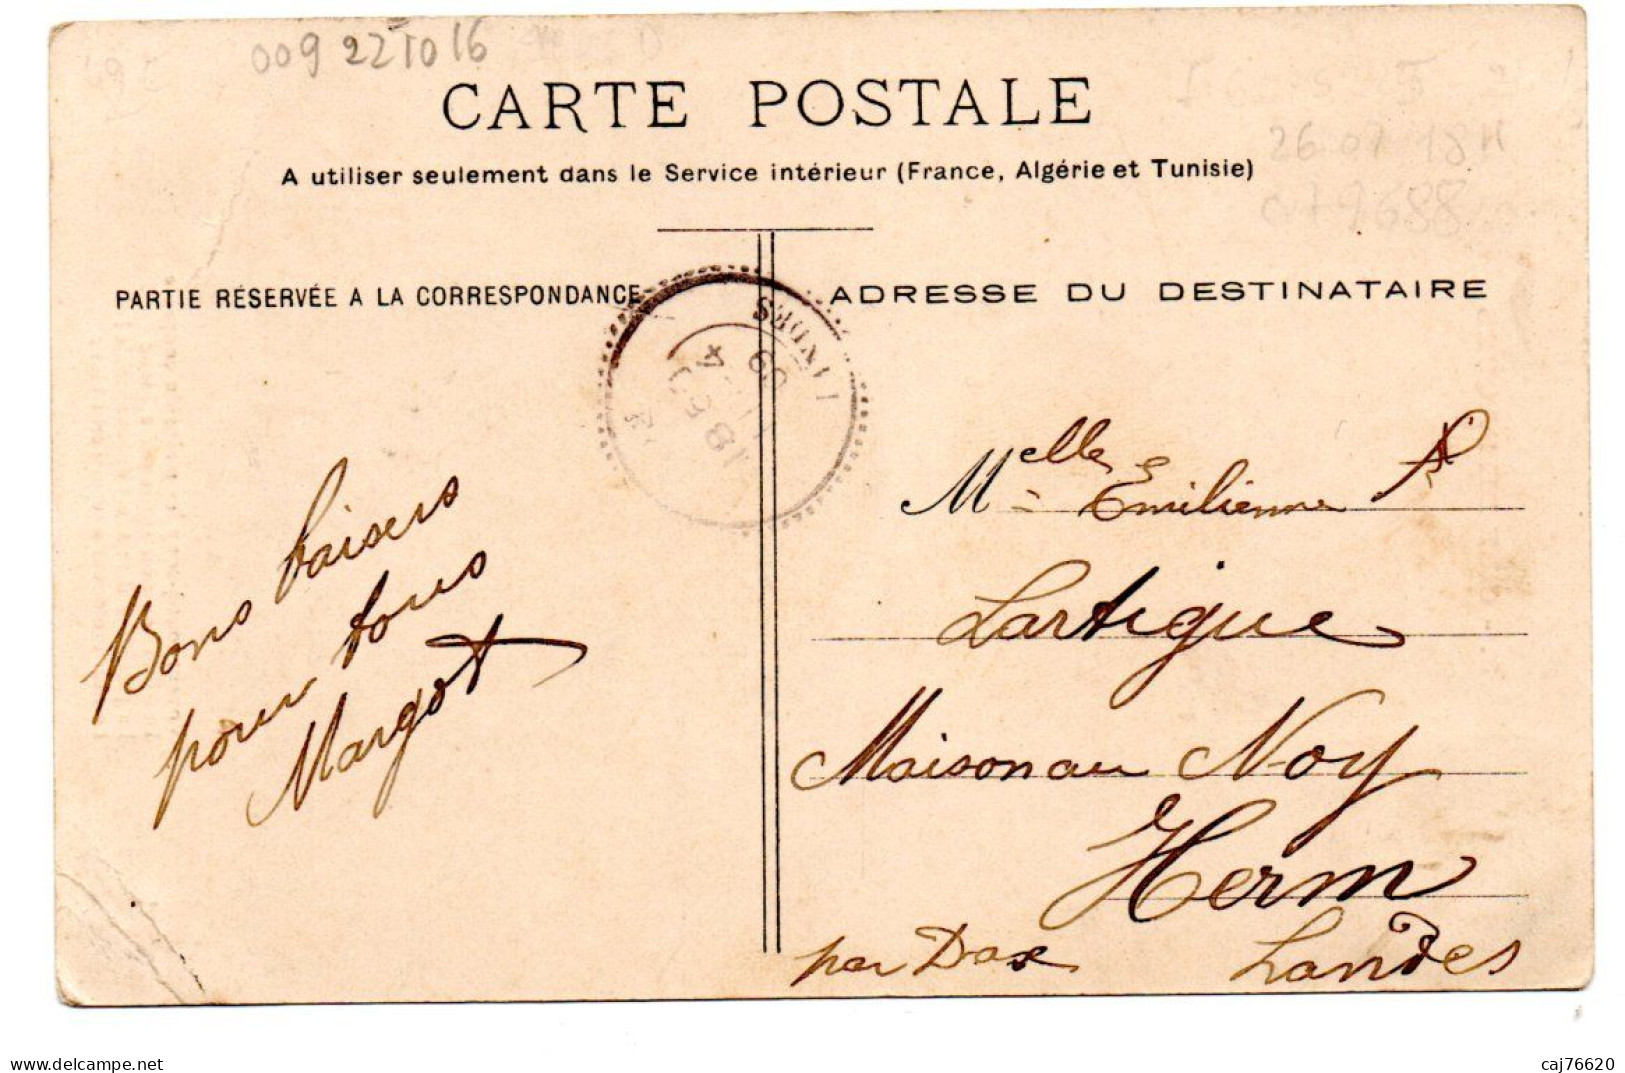 009 22T016
CARTE POSTALE
A utiliser seulement dans le Service intérieur (France, Algérie et Tunisie)
26 07 18H
079688
PARTIE RÉSERVÉE A LA CORRESPONDANCE
ADRESSE DU DESTINATAIRE
LANDES
09
4
18 50
Bons baisers
pour tous
Margot
Melle Emilienne
Lartigue
Maison au Noy
Herm
par Dax Landes
delcampe.net
caj76620